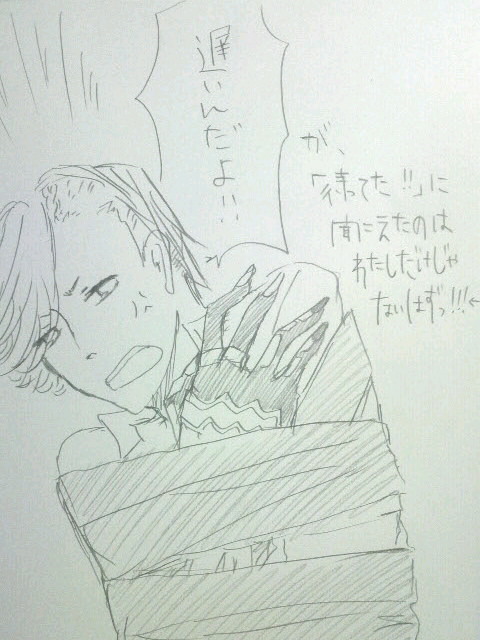 遅いんだよ!!
が、
「待ってた!!」に
聞こえたのは
わたしだけじゃ
ないはずっ!!!